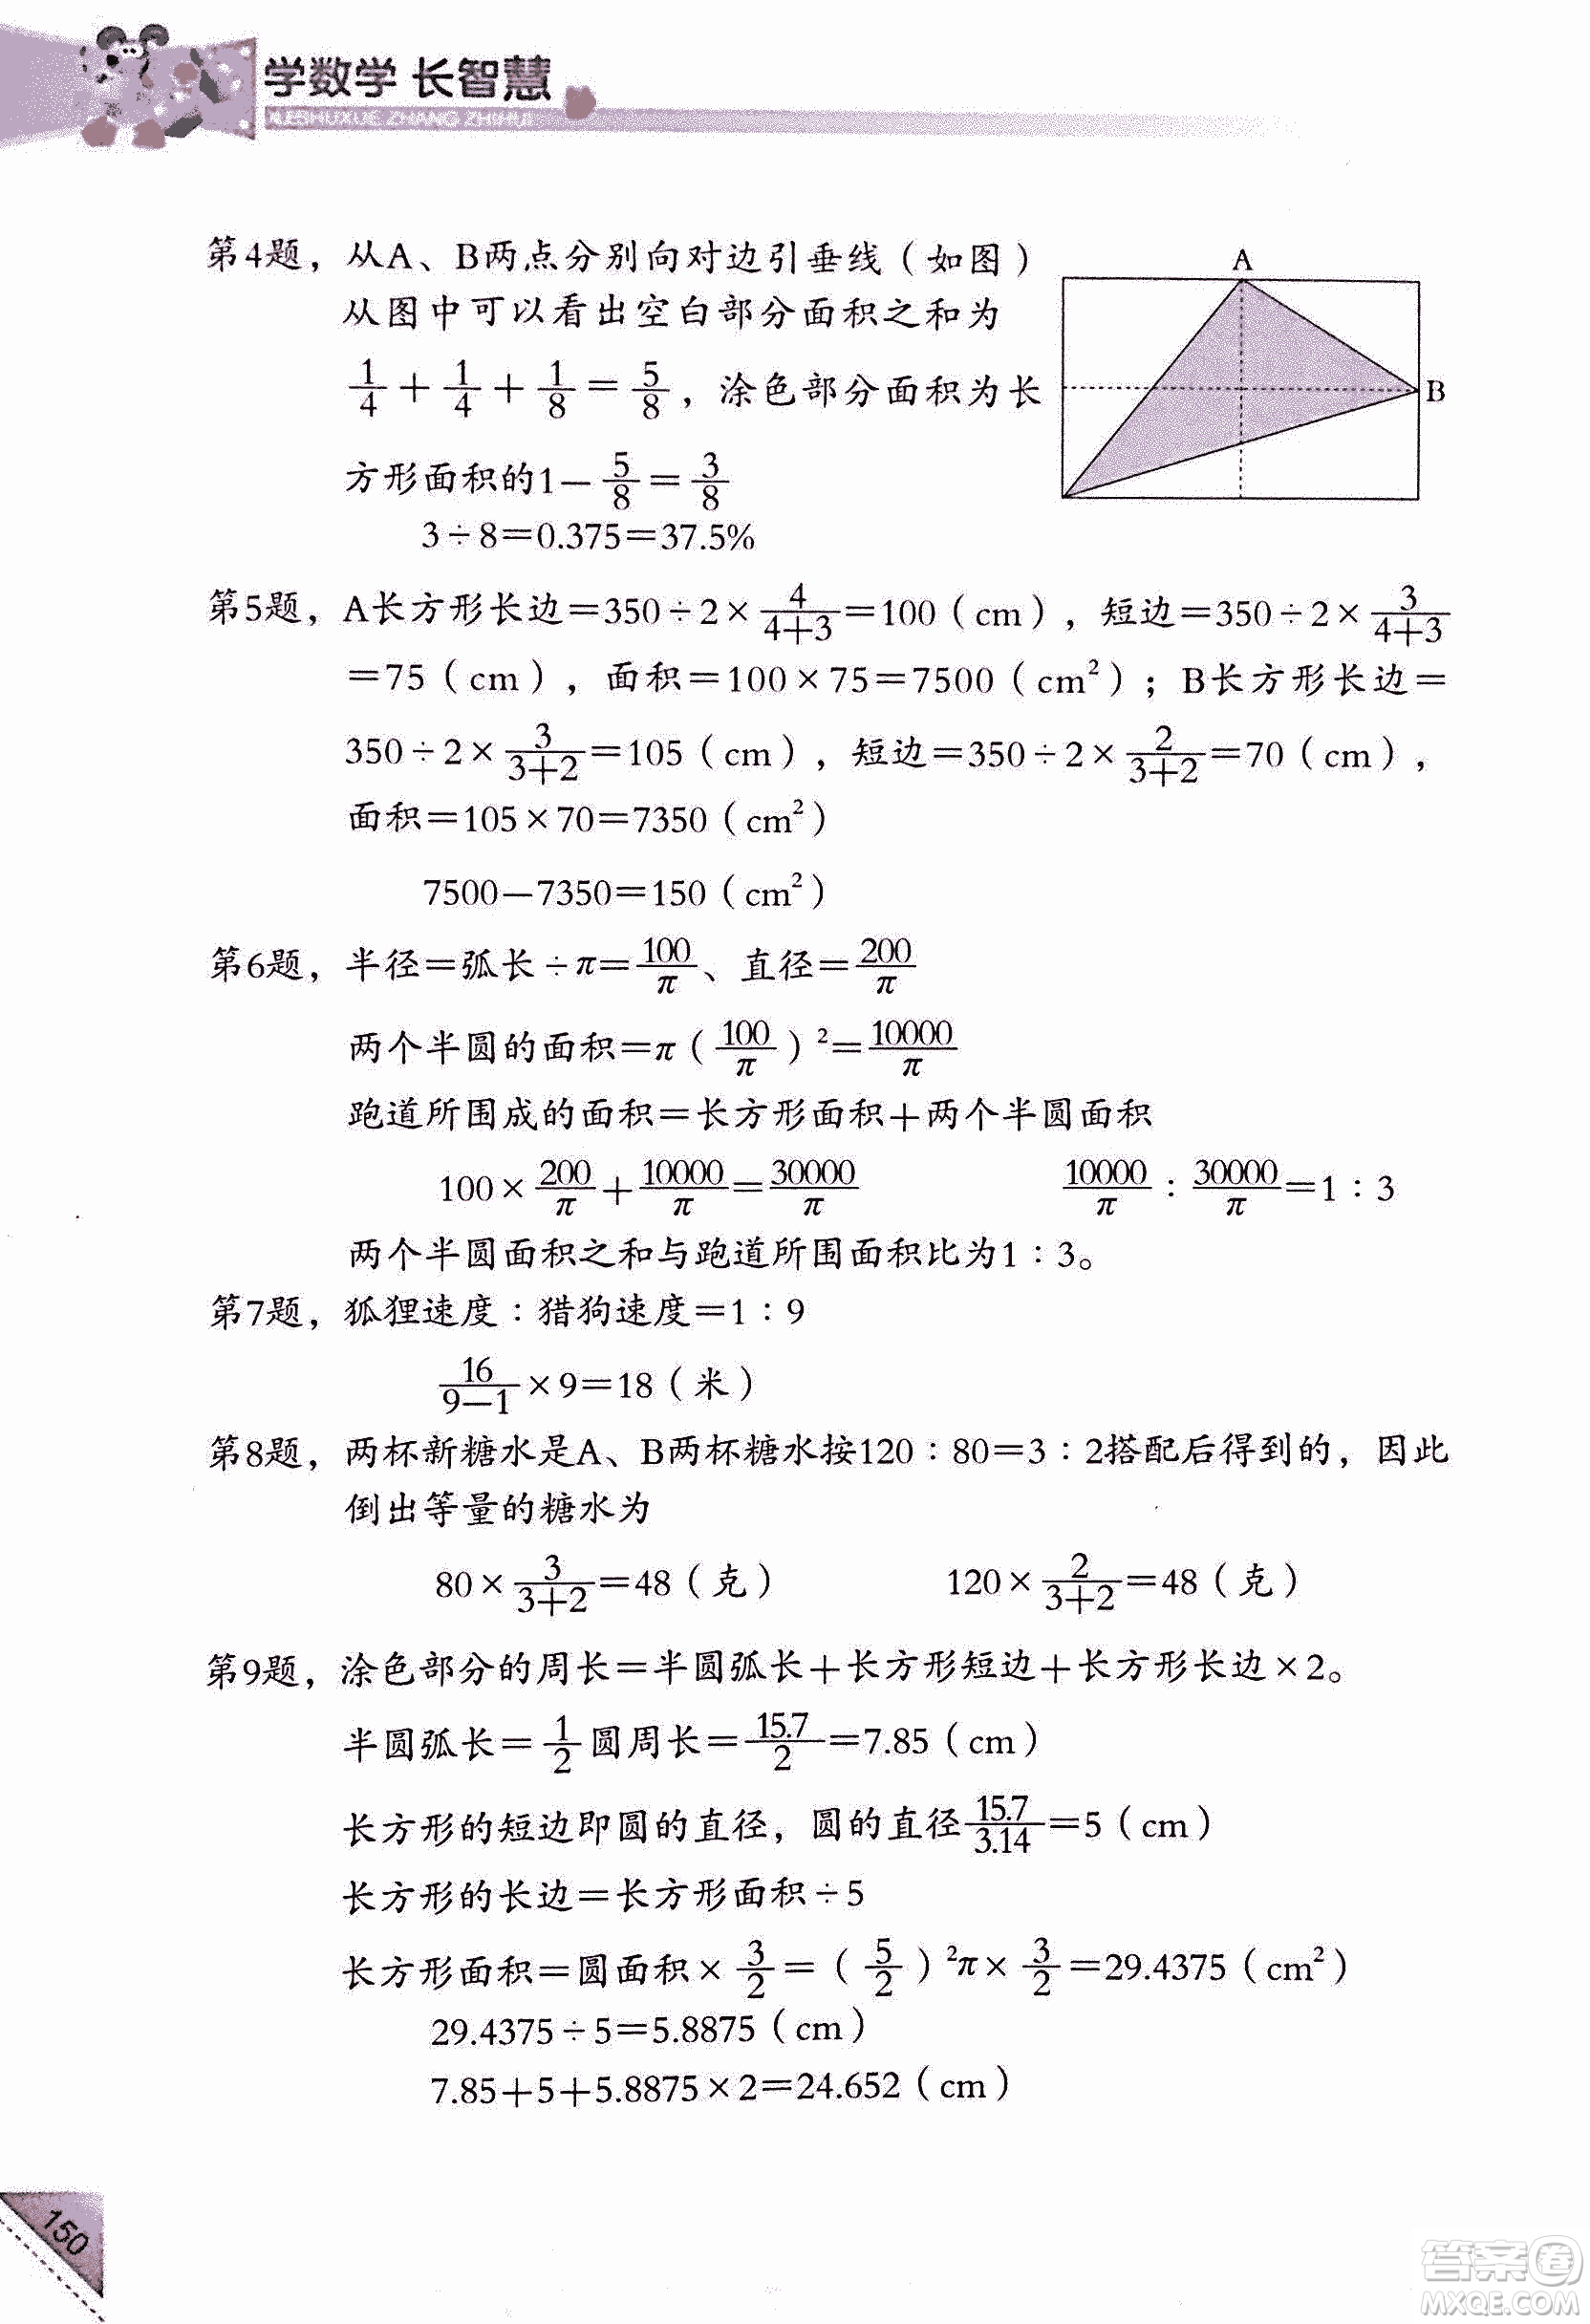 学数学 长智慧
XUESHUXUE ZHANG ZHIHUI
第4题，从A、B两点分别向对边引垂线（如图）
从图中可以看出空白部分面积之和为
1/4＋1/4＋1/8＝5/8，涂色部分面积为长
方形面积的1－5/8＝3/8
3÷8＝0.375＝37.5%
A
B
第5题，A长方形长边＝350÷2×4/(4＋3)＝100（cm），短边＝350÷2×3/(4＋3)
＝75（cm），面积＝100×75＝7500（cm²）；B长方形长边＝
350÷2×3/(3＋2)＝105（cm），短边＝350÷2×2/(3＋2)＝70（cm），
面积＝105×70＝7350（cm²）
7500－7350＝150（cm²）
第6题，半径＝弧长÷π＝100/π、直径＝200/π
两个半圆的面积＝π（100/π）²＝10000/π
跑道所围成的面积＝长方形面积＋两个半圆面积
100×200/π＋10000/π＝30000/π 10000/π：30000/π＝1：3
两个半圆面积之和与跑道所围面积比为1：3。
第7题，狐狸速度：猎狗速度＝1：9
16/(9－1)×9＝18（米）
第8题，两杯新糖水是A、B两杯糖水按120：80＝3：2搭配后得到的，因此
倒出等量的糖水为
80×3/(3＋2)＝48（克） 120×2/(3＋2)＝48（克）
第9题，涂色部分的周长＝半圆弧长＋长方形短边＋长方形长边×2。
半圆弧长＝1/2圆周长＝15.7/2＝7.85（cm）
长方形的短边即圆的直径，圆的直径15.7/3.14＝5（cm）
长方形的长边＝长方形面积÷5
长方形面积＝圆面积×3/2＝（5/2）²π×3/2＝29.4375（cm²）
29.4375÷5＝5.8875（cm）
7.85＋5＋5.8875×2＝24.652（cm）
150
答案卷
MXQE.COM